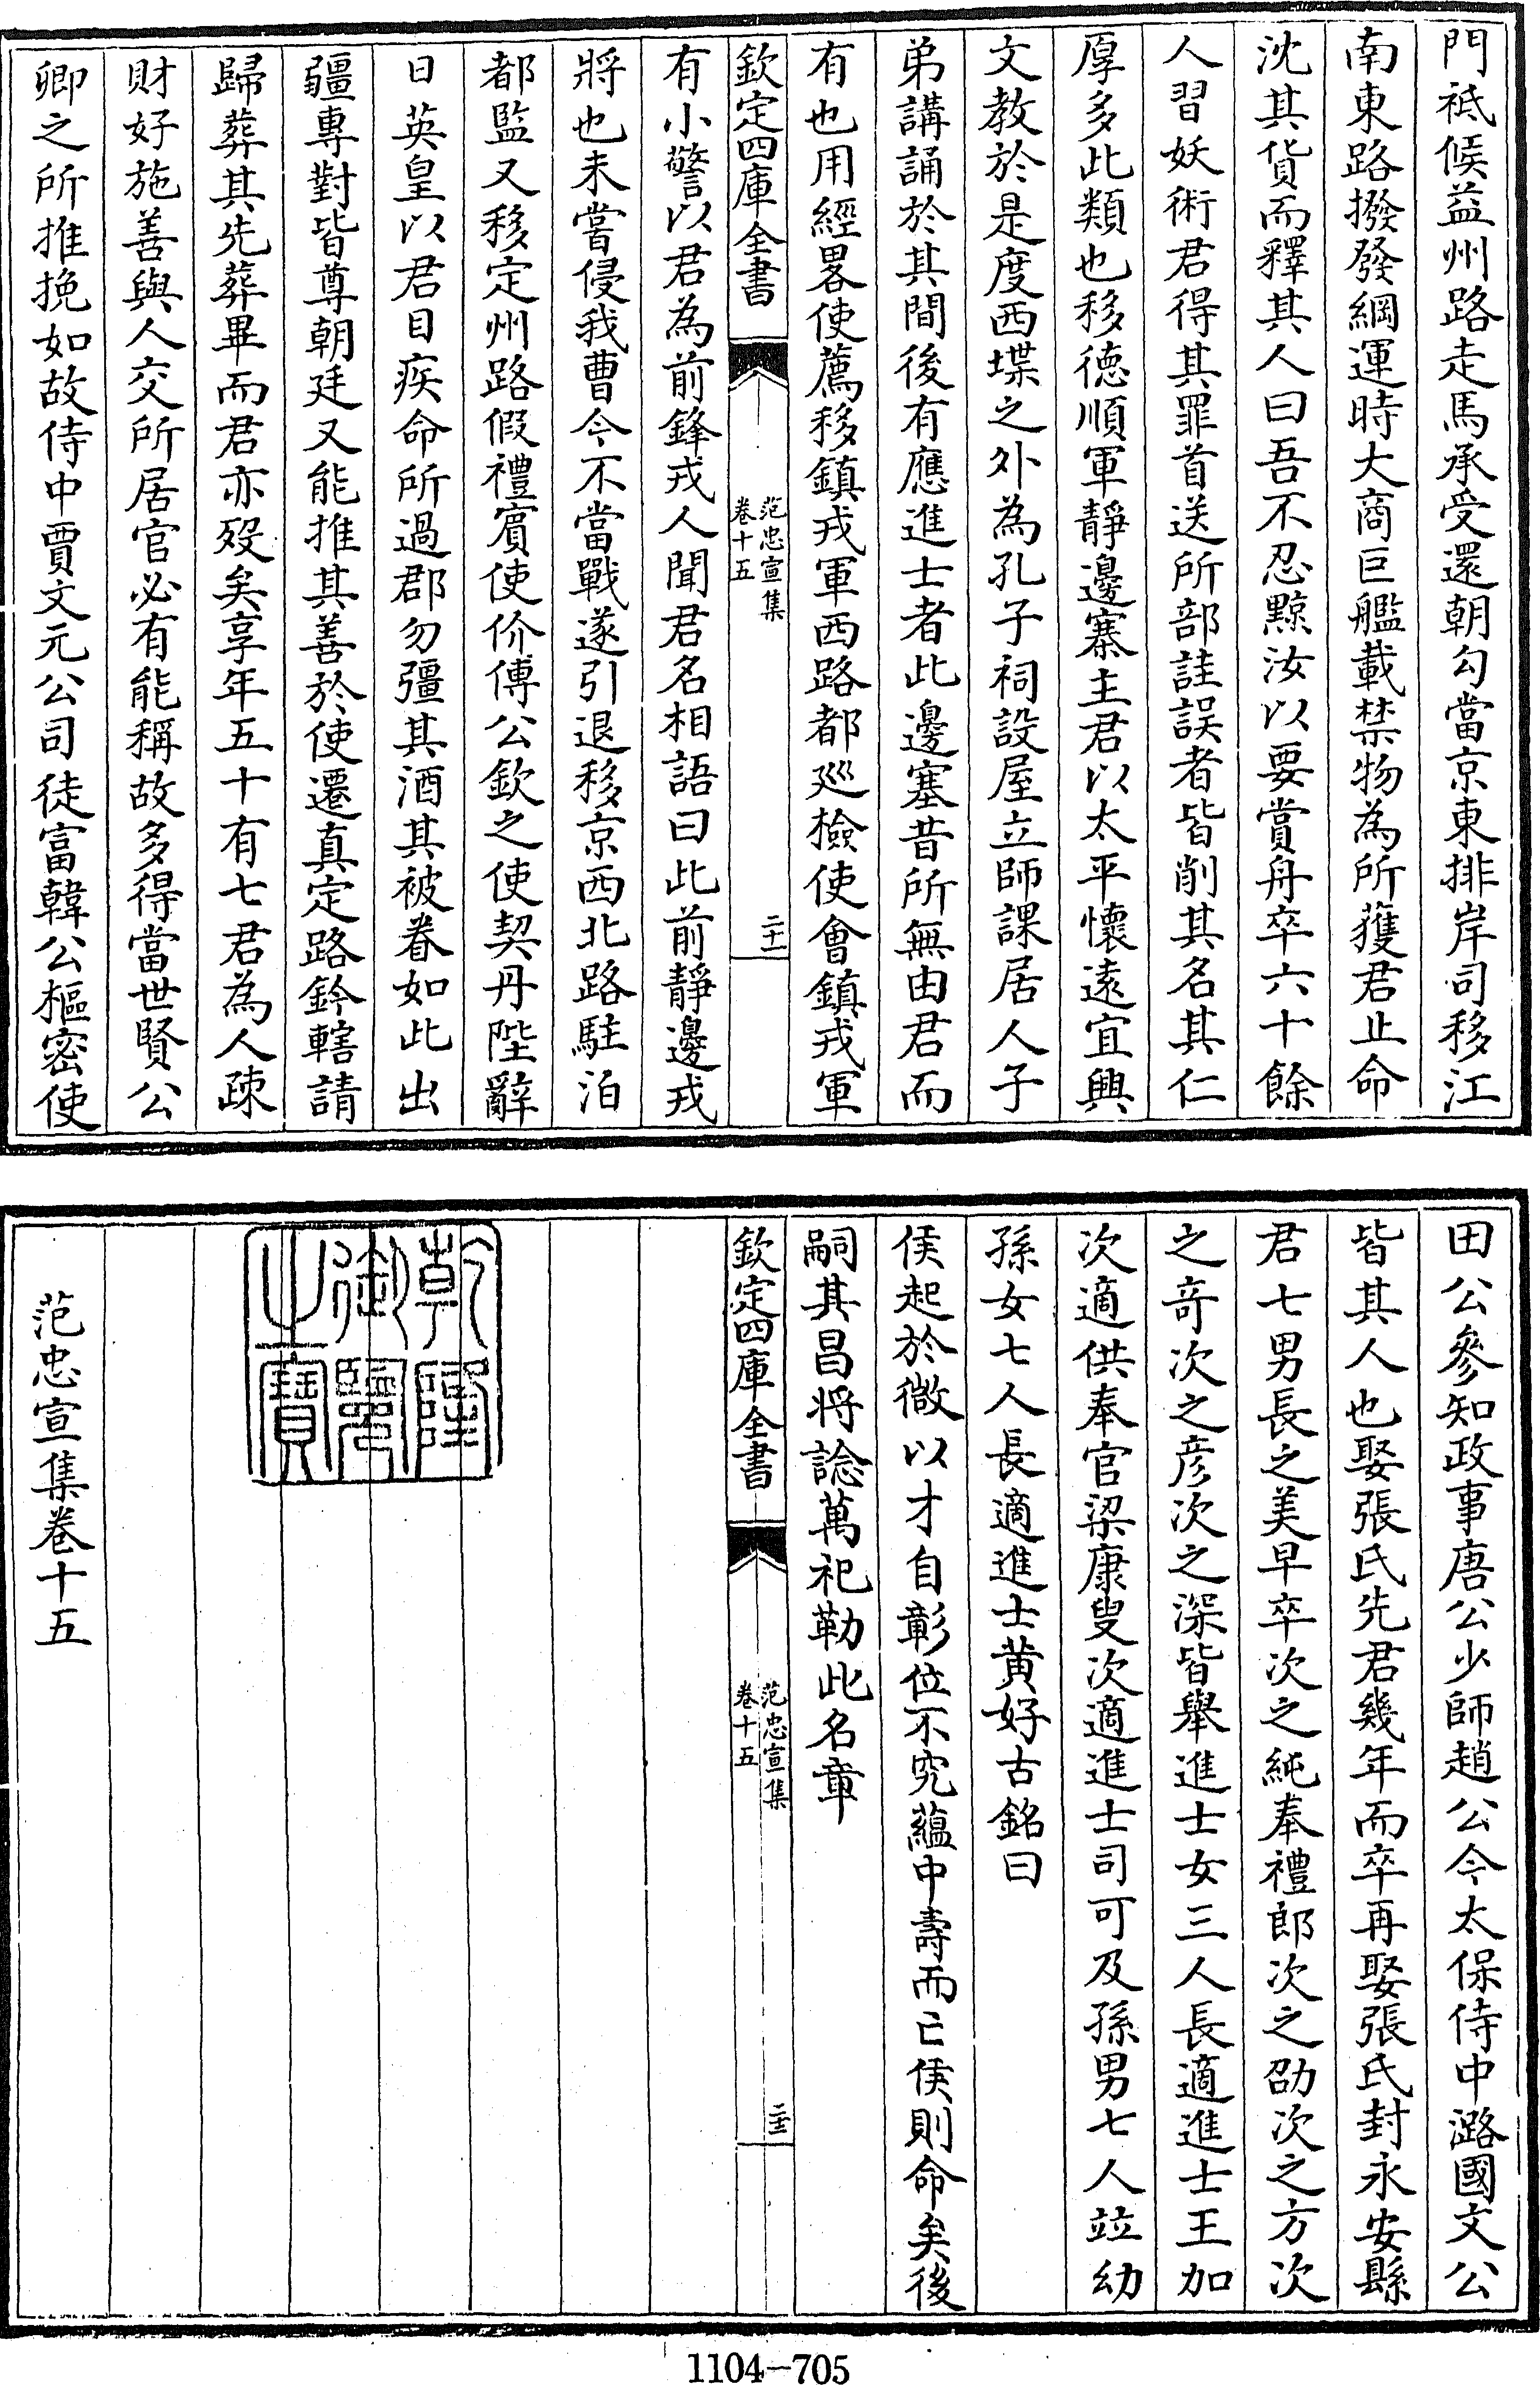 門祗候益州路走馬承受還朝勾當京東排岸司移江
南東路撥發綱運時大商巨艦載禁物為所獲君止命
沈其貨而釋其人曰吾不忍黥汝以要賞舟卒六十餘
人習妖術君得其罪首送所部詿誤者皆削其名其仁
厚多此類也移德順軍靜邊寨主君以太平懷遠宜興
文教於是度西堞之外為孔子祠設屋立師課居人子
弟講誦於其間後有應進士者此邊塞昔所無由君而
有也用經畧使薦移鎮戎軍西路都廵檢使會鎮戎軍
欽定四庫全書
范忠宣集
卷十五
二十一
有小警以君為前鋒戎人聞君名相語曰此前靜邊戎
將也未嘗侵我曹今不當戰遂引退移京西北路駐泊
都監又移定州路假禮賓使价傅公欽之使契丹陛辭
日英皇以君目疾命所過郡勿彊其酒其被眷如此出
疆專對皆尊朝廷又能推其善於使遷真定路鈐轄請
歸葬其先葬畢而君亦歿矣享年五十有七君為人疎
財好施善與人交所居官必有能稱故多得當世賢公
卿之所推挽如故侍中賈文元公司徒富韓公樞密使
田公參知政事唐公少師趙公今太保侍中潞國文公
皆其人也娶張氏先君幾年而卒再娶張氏封永安縣
君七男長之美早卒次之純奉禮郎次之劭次之方次
之竒次之彦次之深皆舉進士女三人長適進士王加
次適供奉官梁康叟次適進士司可及孫男七人竝幼
孫女七人長適進士黄好古銘曰
侯起於微以才自彰位不究藴中壽而亡侯則命矣後
嗣其昌將諗萬祀勒此名章
欽定四庫全書
范忠宣集
卷十五
二十二
乾隆
御覽
之寶
范忠宣集卷十五
1104-705